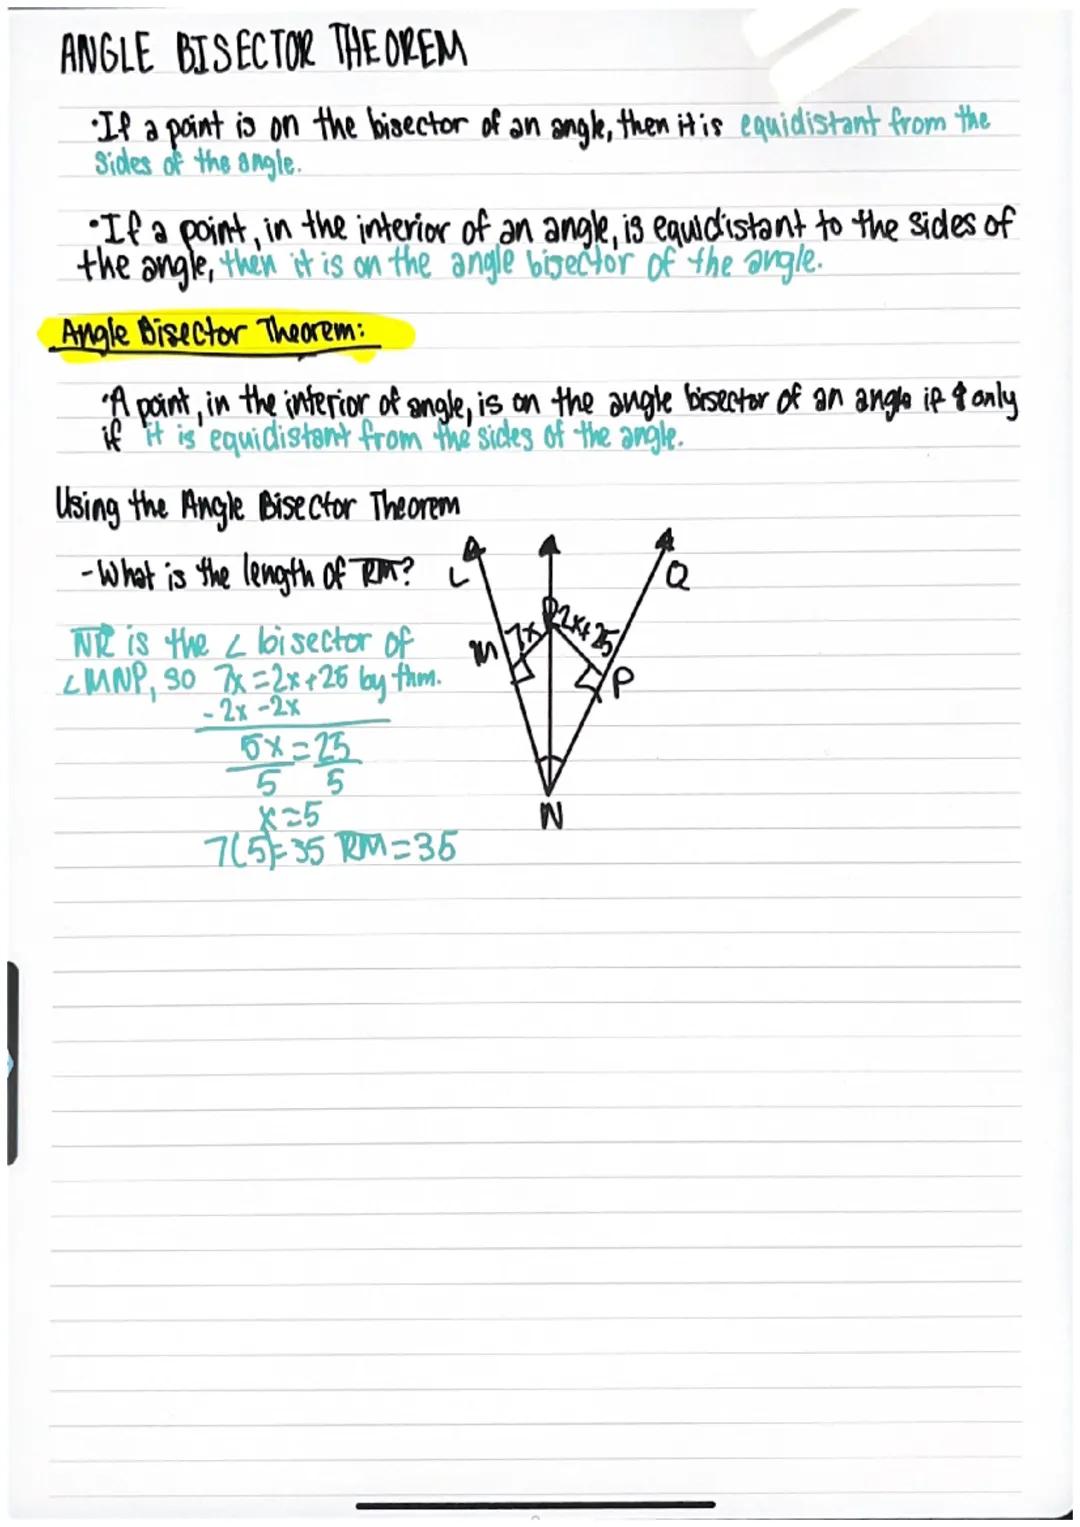 ANGLE BISECTOR THEOREM
•If a point is on the bisector of an angle, then it is equidistant from the
sides of the angle.
•If a point, in the interior of an angle, is equidistant to the sides of
the angle, then it is on the angle bisector of the angle.
Angle Bisector Theorem:
•A point, in the interior of angle, is on the angle bisector of an angle if & only
if it is equidistant from the sides of the angle.
Using the Angle Bisector Theorem
-What is the length of RM?
L
Q
R
NR is the ∠ bisector of
M
7x
2x+25
∠MNP, so 7x=2x+25 by thm.
P
-2x -2x
5x=25
5 5
x=5
N
7(5)=35 RM=35